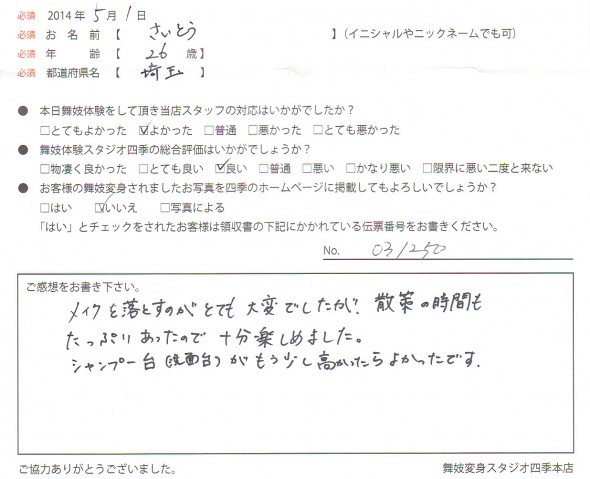 必須 2014 年 5 月 1 日
必須 お 名 前 【 さいとう 】(イニシャルやニックネームでも可)
必須 年 齢 【 26 歳】
必須 都道府県名 【 埼玉 】
● 本日舞妓体験をして頂き当店スタッフの対応はいかがでしたか?
□とてもよかった ☑よかった □普通 □悪かった □とても悪かった
● 舞妓体験スタジオ四季の総合評価はいかがでしょうか?
□物凄く良かった □とても良い ☑良い □普通 □悪い □かなり悪い □限界に悪い二度と来ない
● お客様の舞妓変身されましたお写真を四季のホームページに掲載してもよろしいでしょうか?
□はい ☑いいえ □写真による
「はい」とチェックをされたお客様は領収書の下記にかかれている伝票番号をお書きください。
No. 031250
ご感想をお書き下さい。
メイクを落とすのがとても大変でしたが、散策の時間も
たっぷりあったので十分楽しめました。
シャンプー台(洗面台)がもう少し高かったらよかったです.
ご協力ありがとうございました。 舞妓変身スタジオ四季本店